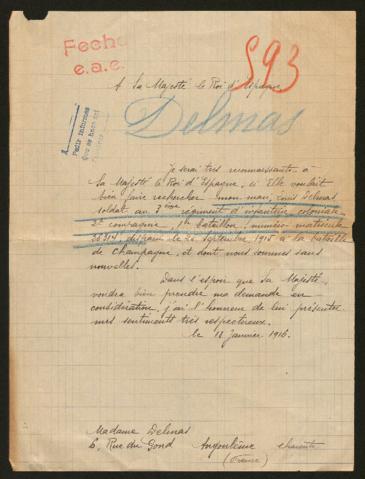 Fecho
e.a.e.
593
A Sa Majesté le Roi d'Espagne
Pedir informes
que se hace
Delmas
Je serai très reconnaissante à
Sa Majesté le Roi d'Espagne, si Elle voulait
bien faire rechercher mon mari, Louis Delmas
soldat au 3e régiment d'infanterie coloniale
2e compagnie, bataillon, numéro matricule
disparu le 24 septembre 1915 à la bataille
de Champagne, et dont nous sommes sans
nouvelles.
Dans l'espoir que Sa Majesté
voudra bien prendre ma demande en
considération, j'ai l'honneur de lui présenter
mes sentiments très respectueux.
le 18 Janvier 1916.
Madame Delmas
6, Rue du Gond Angoulême Charente
(France)